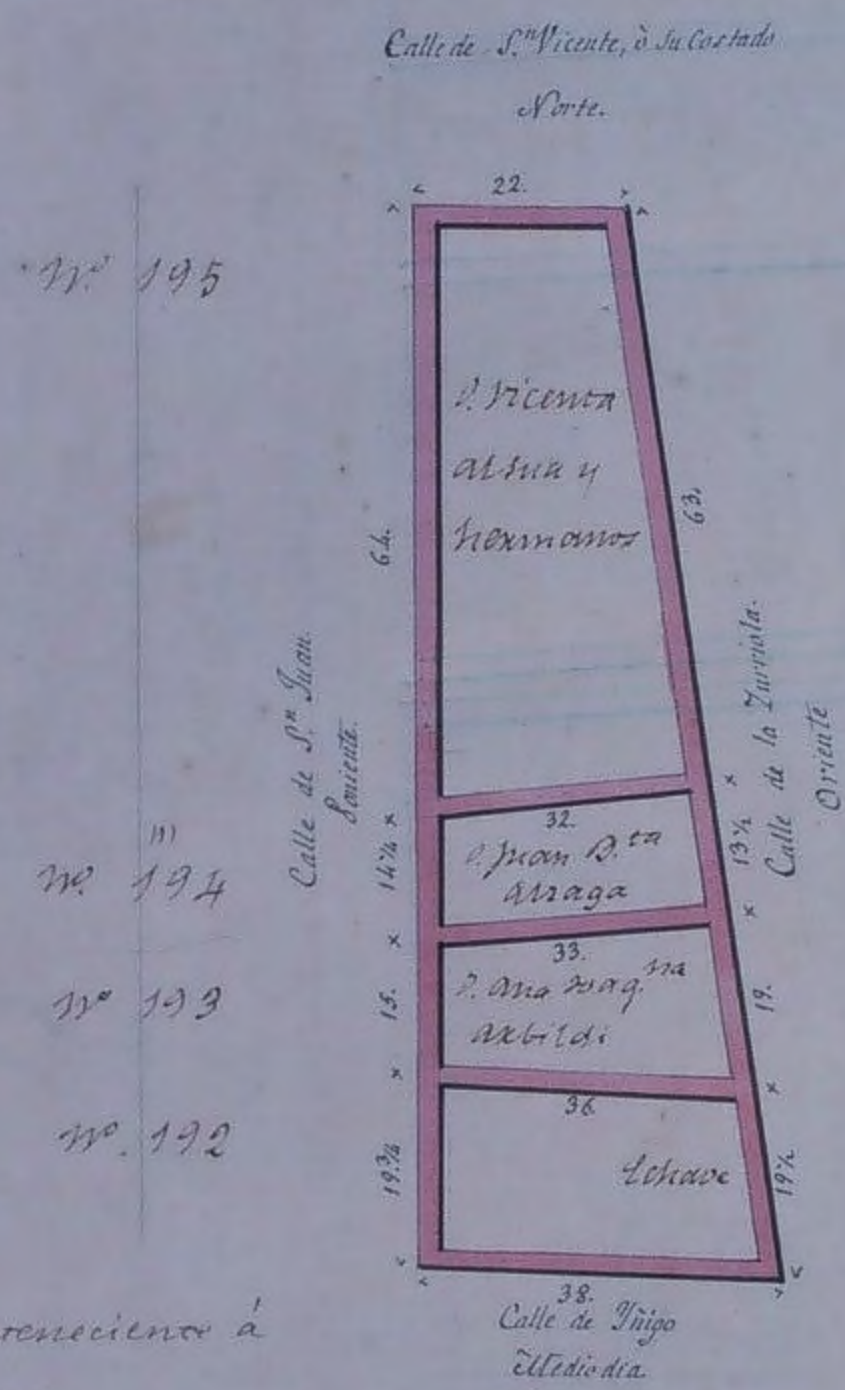 Calle de S.ⁿ Vicente, ò Su Costado
Norte.
22.
Nº 195
D. Vicenta
alsua y
hermanos
64.
63.
Calle de S.ⁿ Juan.
Poniente.
Calle de la Zurriola.
Oriente
32.
Nº 194
D. Juan B.ta
arraga
14¼
13½
33.
Nº 193
D. Ana Joaq.na
arbildi
15.
19.
36
Nº. 192
Echave
19¾
19½
38.
Calle de Yñigo
Medio dia.
teneciente á